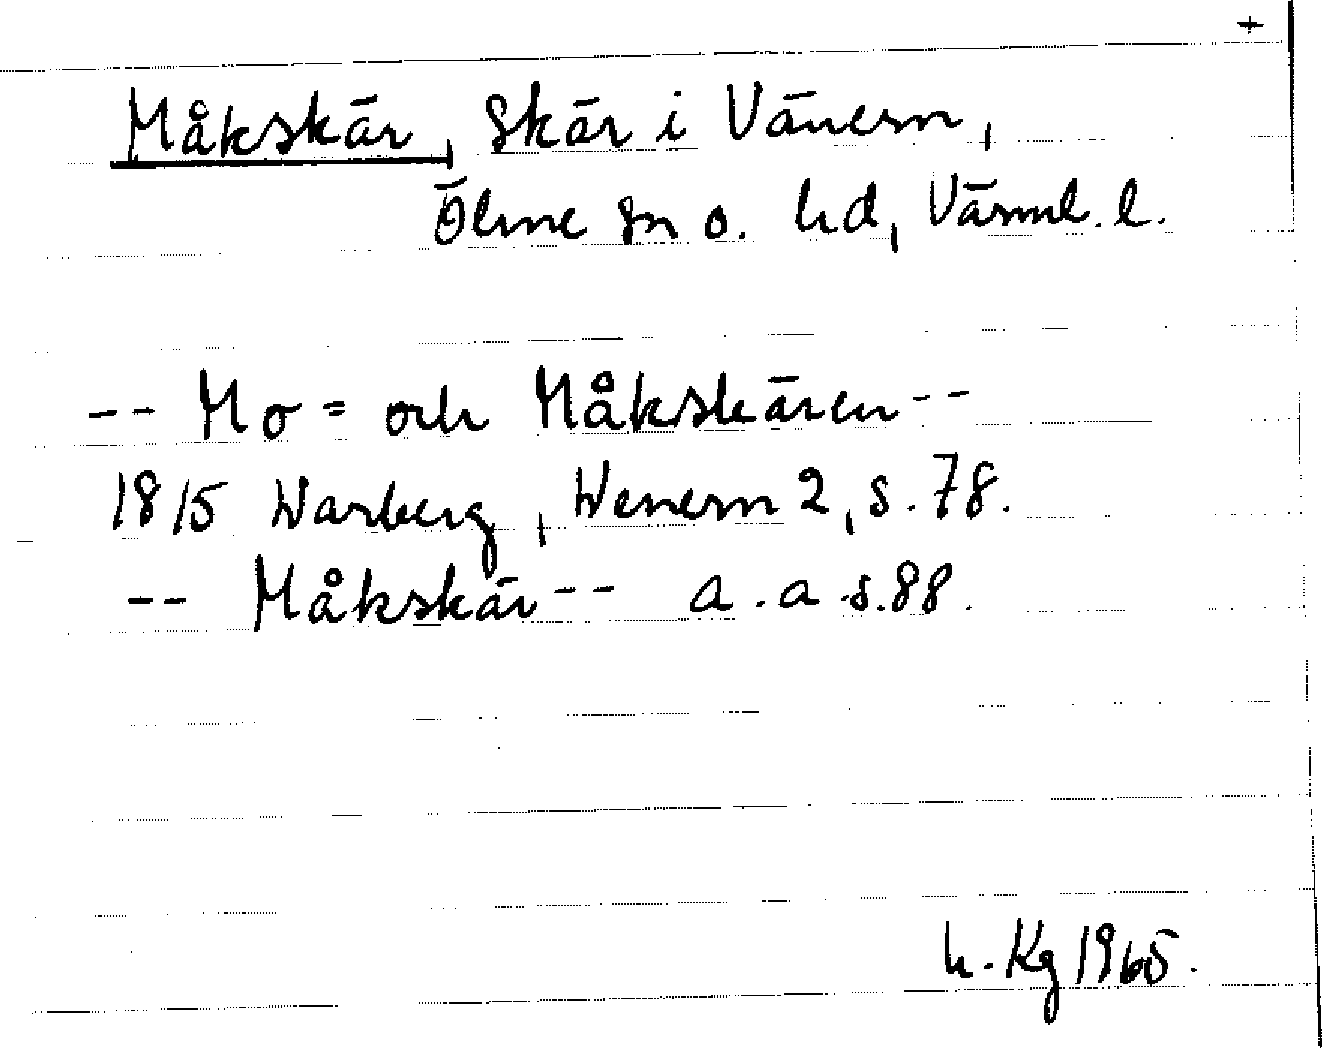 +
Måkskär, skär i Vänern,
Ölme sn o. hd, Värml. l.
-- Mo= och Måkskären --
1815 Warberg, Wenern 2, s. 78.
-- Måkskär -- a. a s. 88.
h. Kg 1965.